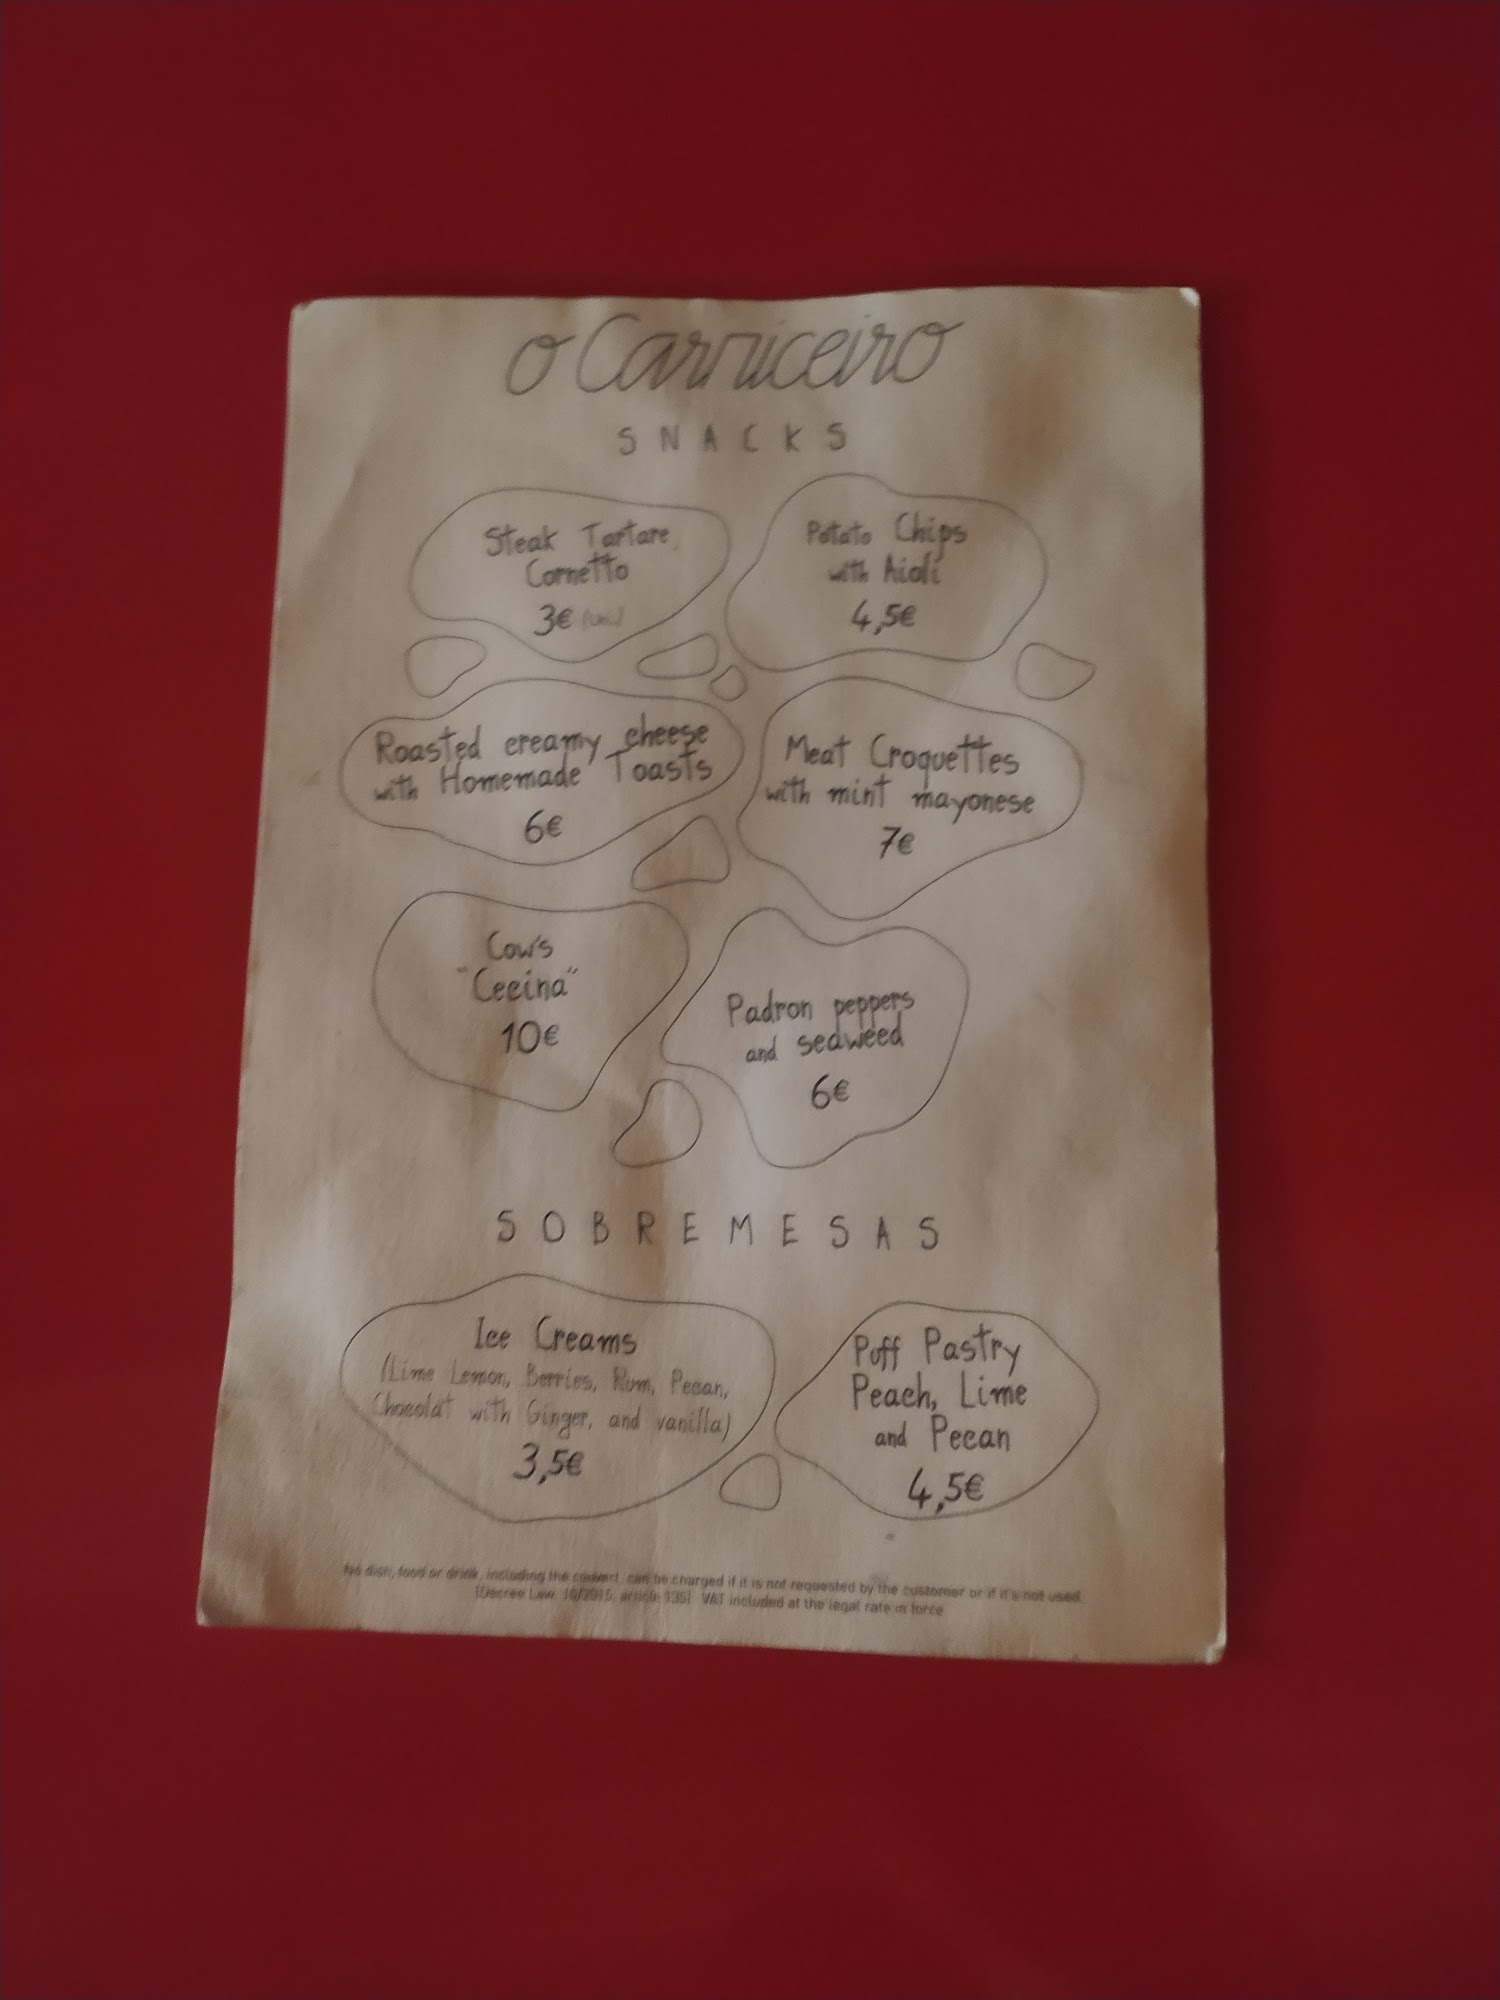 o Carniceiro
SNACKS
Steak Tartare,
Cornetto
3€
Potato Chips
with Aioli
4,5€
Roasted creamy cheese
with Homemade Toasts
6€
Meat Croquettes
with mint mayonese
7€
Cow's
"Cecina"
10€
Padron peppers
and seaweed
6€
SOBREMESAS
Ice Creams
(Lime Lemon, Berries, Rum, Pecan,
Chocolat with Ginger, and vanilla)
3,5€
Puff Pastry
Peach, Lime
and Pecan
4,5€
No dish, food or drink, including the couvert, can be charged if it is not requested by the customer or if it's not used.
(Decree Law 10/2015, article 135) VAT included at the legal rate in force